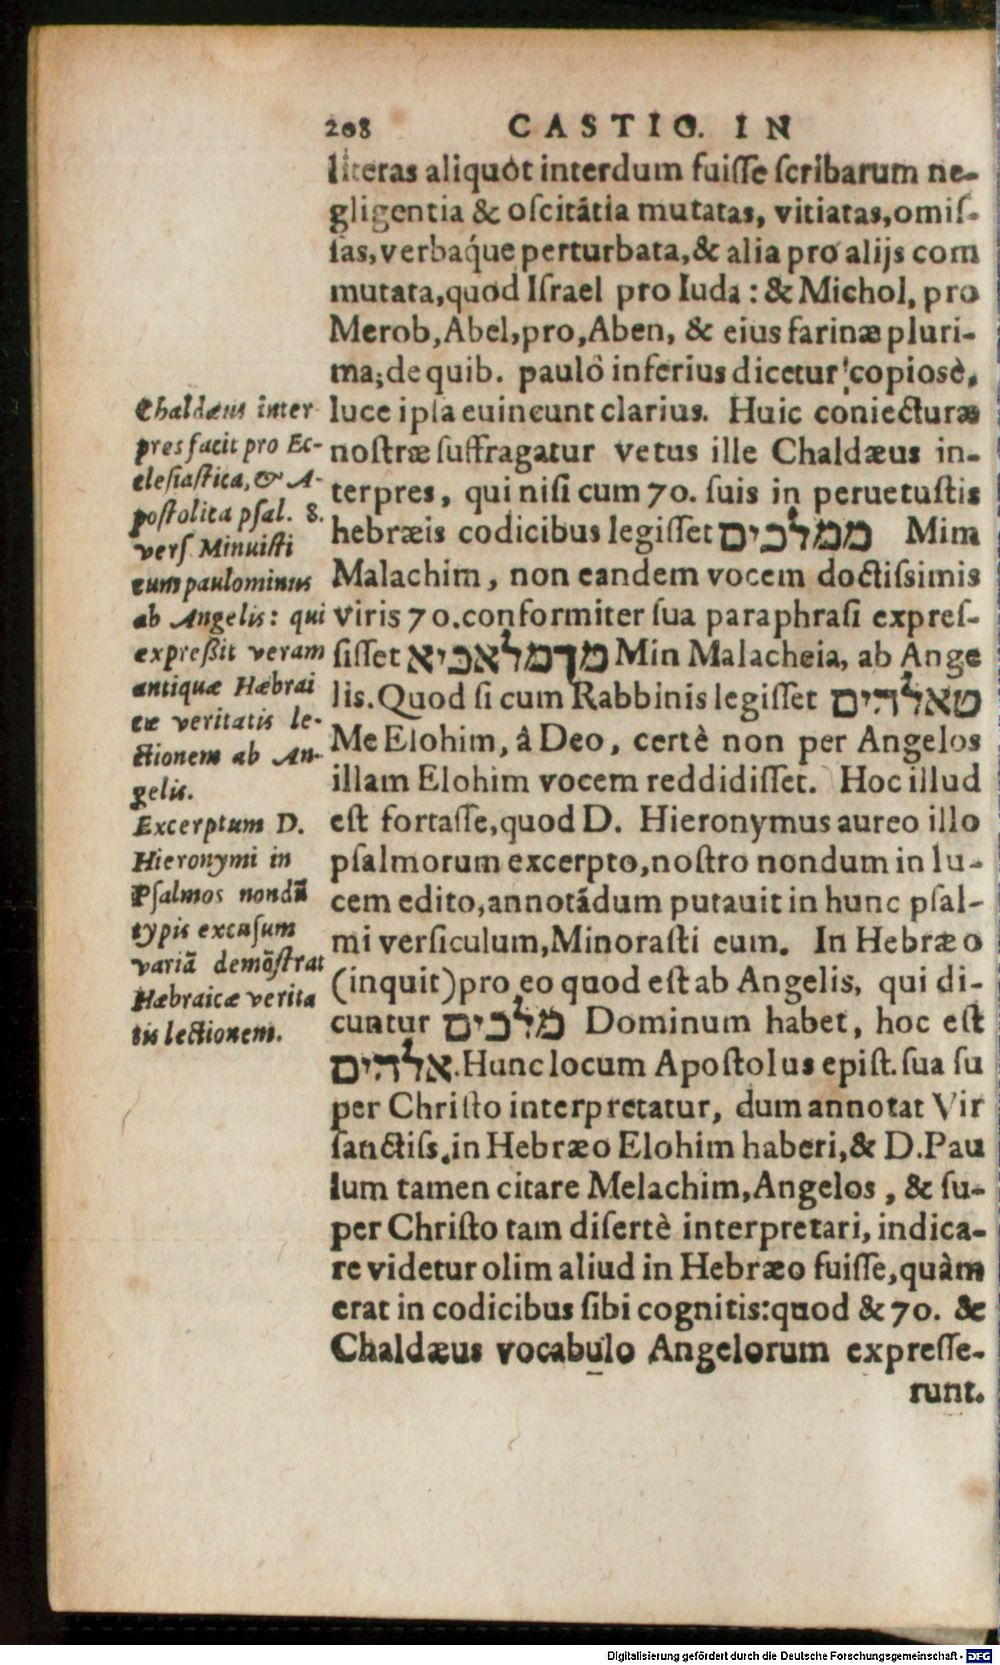 208 CASTIG. IN
literas aliquót interdum fuiſſe ſcribarum ne-
gligentia & oſcitātia mutatas, vitiatas,omiſ-
ſas,verbaq́ue perturbata,& alia pro alijs com
mutata,quod Iſrael pro Iuda : & Michol, pro
Merob,Abel,pro,Aben, & eius farinæ pluri-
ma;de quib. paulò inferius dicetur copiosè,
luce ipſa euincunt clarius. Huic coniecturæ
noſtræ ſuffragatur vetus ille Chaldæus in-
terpres, qui niſi cum 70. ſuis in peruetuſtis
hebræis codicibus legiſſet ממלכים Mim
Malachim, non eandem vocem doctiſsimis
viris 70.conformiter ſua paraphraſi expreſ-
ſiſſet מןמלאכיא Min Malacheia, ab Ange
lis.Quod ſi cum Rabbinis legiſſet מאלהים
Me Elohim, à Deo, certè non per Angelos
illam Elohim vocem reddidiſſet. Hoc illud
eſt fortaſſe,quod D. Hieronymus aureo illo
pſalmorum excerpto,noſtro nondum in lu-
cem edito,annotādum putauit in hunc pſal-
mi verſiculum,Minoraſti eum. In Hebræo
(inquit)pro eo quod eſt ab Angelis, qui di-
cuntur מלכים Dominum habet, hoc eſt
אלהים.Hunc locum Apoſtolus epiſt.ſua ſu
per Chriſto interpretatur, dum annotat Vir
ſanctiſs.in Hebræo Elohim haberi,& D.Pau
lum tamen citare Melachim,Angelos , & ſu-
per Chriſto tam diſertè interpretari, indica-
re videtur olim aliud in Hebræo fuiſſe,quàm
erat in codicibus ſibi cognitis:quod & 70. &
Chaldæus vocabulo Angelorum expreſſe-
runt.
Chaldæus inter
pres facit pro Ec-
cleſiaſtica, & A-
poſtolica pſal. 8.
verſ Minuiſti
eum paulominus
ab Angelis: qui
expreßit veram
antiquæ Hæbrai
cæ veritatis le-
ctionem ab An-
gelis.
Excerptum D.
Hieronymi in
Pſalmos nondū
typis excuſum
variā demōſtrat
Hæbraicæ verita
tis lectionem.
Digitalisierung gefördert durch die Deutsche Forschungsgemeinschaft - DFG